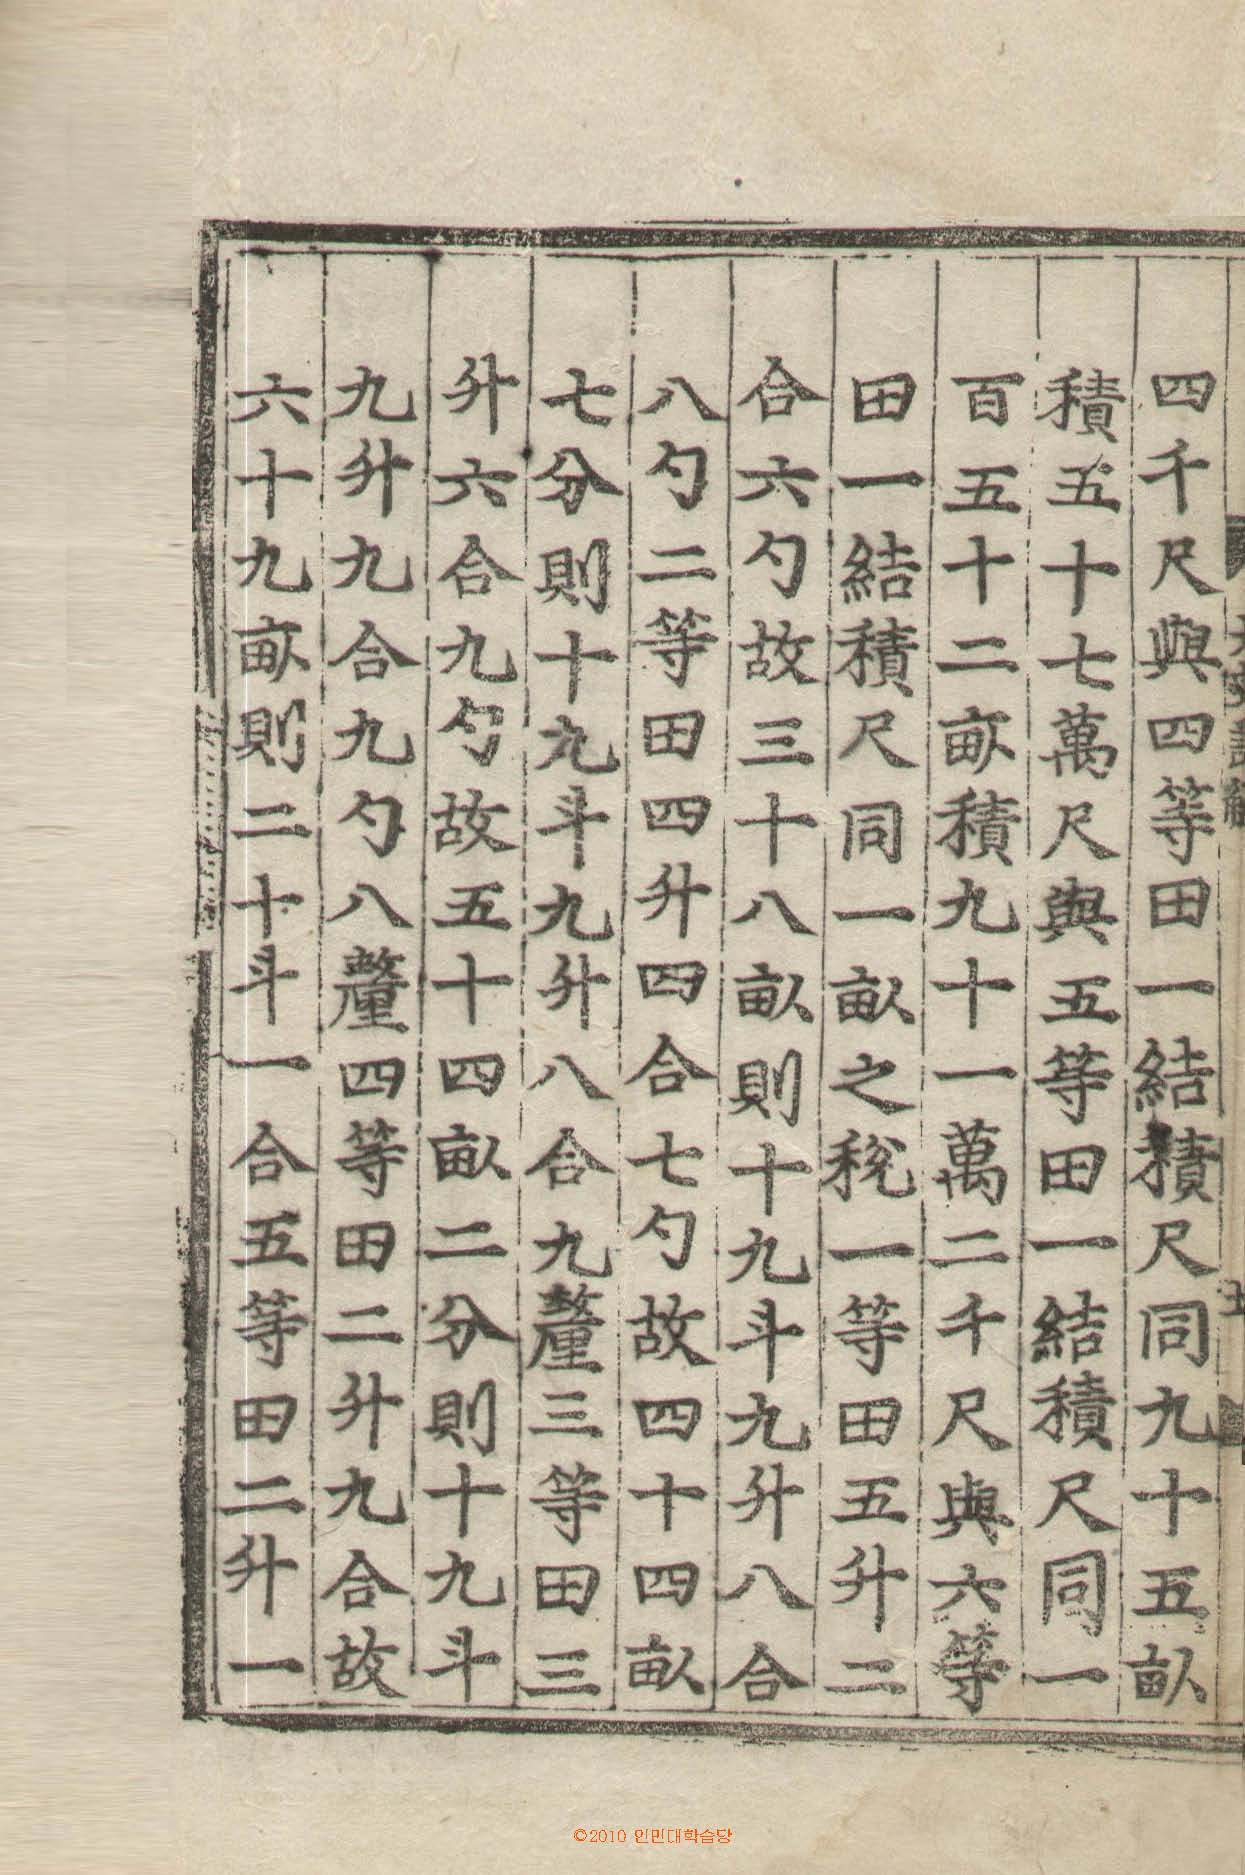 四千尺與四等田一結積尺同九十五畝
積五十七萬尺與五等田一結積尺同一
百五十二畝積九十一萬二千尺與六等
田一結積尺同一畝之稅一等田五升二
合六勺故三十八畝則十九斗九升八合
八勺二等田四升四合七勺故四十四畝
七分則十九斗九升八合九釐三等田三
升六合九勺故五十四畝二分則十九斗
九升九合九勺八釐四等田二升九合故
六十九畝則二十斗一合五等田二升一
©2010 인민대학습당